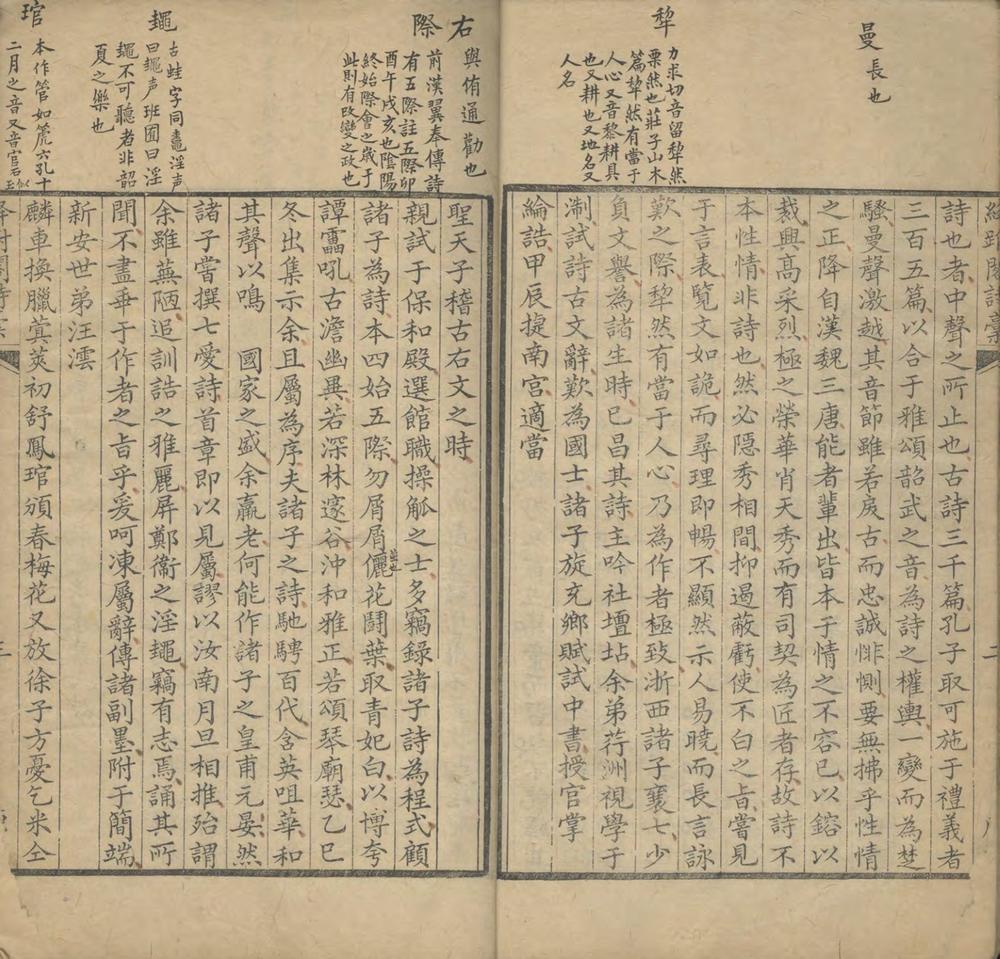 曼長也
犂
力求切音留犂然
栗然也莊子山木
篇犂然有當于
人心又音黎耕具
也又耕也又地名又
人名
詩也者中聲之所止也古詩三千篇孔子取可施于禮義者
三百五篇以合于雅頌韶武之音為詩之權輿一變而為楚
騷曼聲激越其音節雖若戾古而忠誠悱惻要無拂乎性情
之正降自漢魏三唐能者輩出皆本于情之不容已以鎔以
裁興高采烈極之榮華肖天秀而有司契為匠者存故詩不
本性情非詩也然必隱秀相間抑遏蔽虧使不白之旨嘗見
于言表覽文如詭而尋理即暢不顯然示人易曉而長言詠
歎之際犂然有當于人心乃為作者極致浙西諸子襄七少
負文譽為諸生時已昌其詩主吟社壇坫余弟荇洲視學于
淛試詩古文辭歎為國士諸子旋充鄉賦試中書授官掌
綸誥甲辰捷南宮適當
右
與侑通勸也
際
前漢翼奉傳詩
有五際註五際卯
酉午戌亥也陰陽
終始際會之歲于
此則有改變之政也
䵷
古蛙字同鼃淫声
曰䵷声班固曰淫
䵷不可聽者非韶
夏之樂也
琯
本作管如篪六孔十
二月之音又音官石似玉
聖天子稽古右文之時
親試于保和殿選館職操觚之士多竊錄諸子詩為程式顧
諸子為詩本四始五際勿屑屑儷花鬪葉取青妃白以博夸
譚靁吼古澹幽異若深林邃谷沖和雅正若頌琴廟瑟乙巳
冬出集示余且屬為序夫諸子之詩馳騁百代含英咀華和
其聲以鳴　國家之盛余羸老何能作諸子之皇甫元晏然
諸子嘗撰七愛詩首章即以見屬謬以汝南月旦相推殆謂
余雖蕪陋追訓誥之雅麗屏鄭衞之淫䵷竊有志焉誦其所
聞不盡乖于作者之旨乎爰呵凍屬辭傳諸副墨附于簡端
新安世弟汪澐
麟車換臘蓂莢初舒鳳琯頒春梅花又放徐子方憂乞米仝